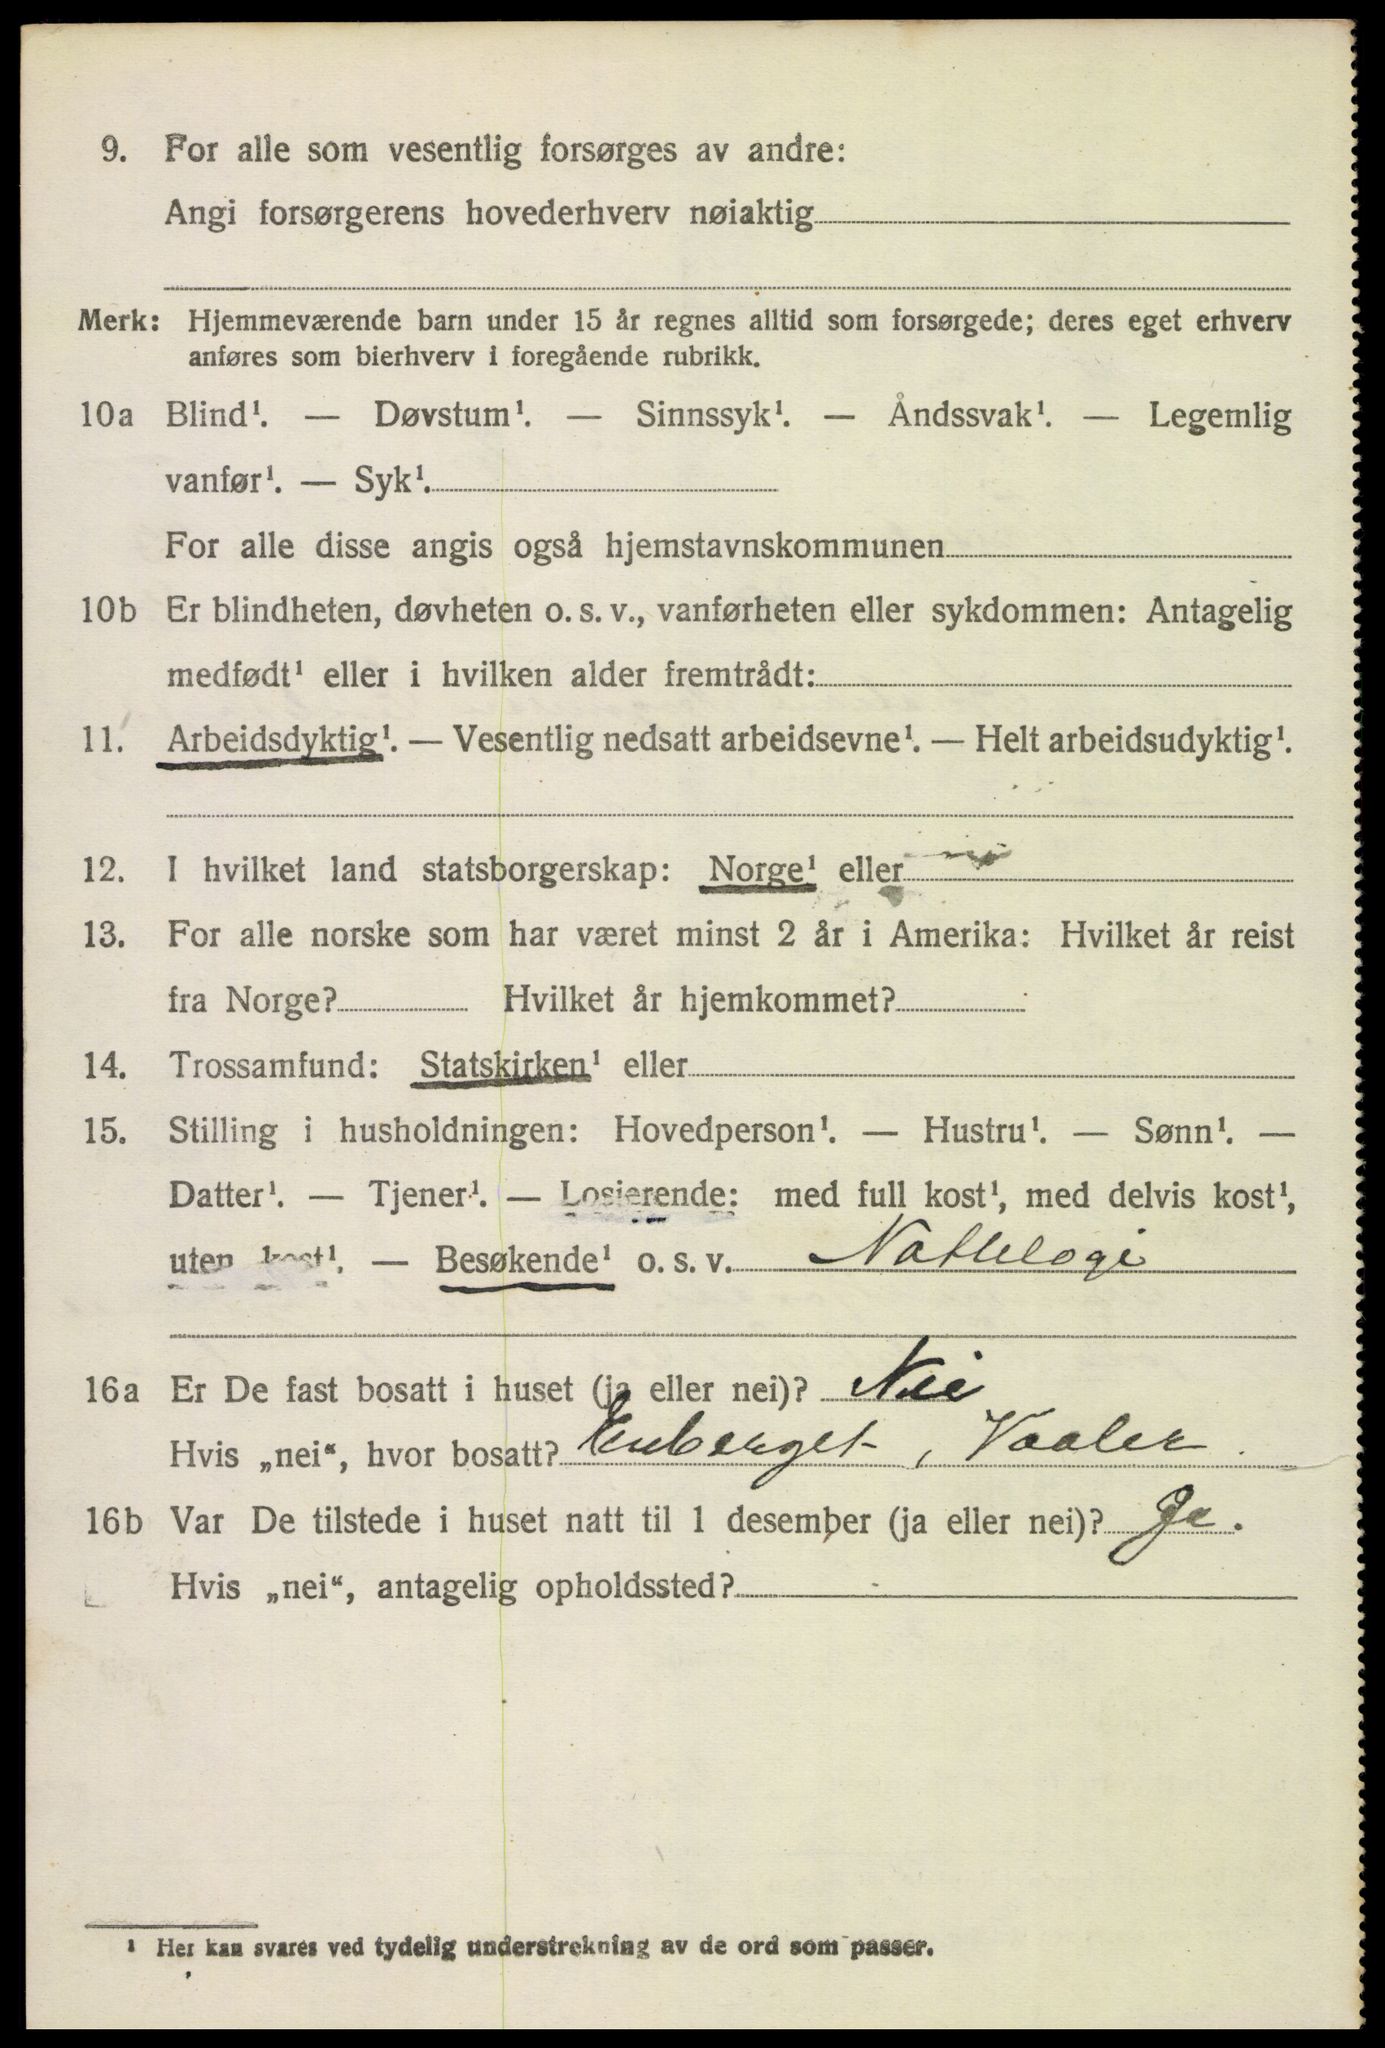 9. For alle som vesentlig forsørges av andre:
Angi forsørgerens hovederhverv nøiaktig
Merk: Hjemmeværende barn under 15 år regnes alltid som forsørgede; deres eget erhverv
anføres som bierhverv i foregående rubrikk.
10a Blind¹. — Døvstum¹. — Sinnssyk¹. — Åndssvak¹. — Legemlig
vanfør¹. — Syk¹.
For alle disse angis også hjemstavnskommunen
10b Er blindheten, døvheten o. s. v., vanførheten eller sykdommen: Antagelig
medfødt¹ eller i hvilken alder fremtrådt:
11. Arbeidsdyktig¹. — Vesentlig nedsatt arbeidsevne¹. — Helt arbeidsudyktig¹.
12. I hvilket land statsborgerskap: Norge¹ eller
13. For alle norske som har været minst 2 år i Amerika: Hvilket år reist
fra Norge? Hvilket år hjemkommet?
14. Trossamfund: Statskirken¹ eller
15. Stilling i husholdningen: Hovedperson¹. — Hustru¹. — Sønn¹. —
Datter¹. — Tjener¹. — Losjerende: med full kost¹, med delvis kost¹,
uten kost¹. — Besøkende¹ o. s. v. Natteloge
16a Er De fast bosatt i huset (ja eller nei)? Nei
Hvis „nei“, hvor bosatt? Enberget, Vaaler.
16b Var De tilstede i huset natt til 1 desember (ja eller nei)? Ja.
Hvis „nei“, antagelig opholdssted?
¹ Her kan svares ved tydelig understrekning av de ord som passer.